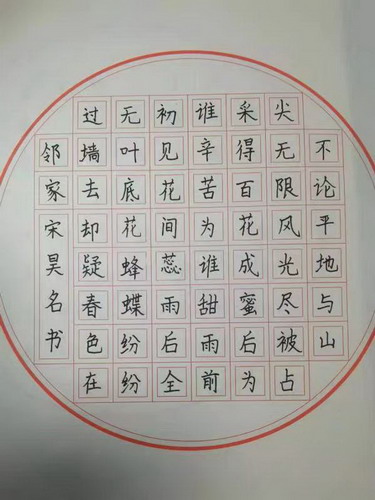 不论平地与山
尖无限风光尽被占
采得百花成蜜后为
谁辛苦为谁甜雨前
初见花间蕊雨后全
无叶底花蜂蝶纷纷
过墙去却疑春色在
邻家宋昊名书